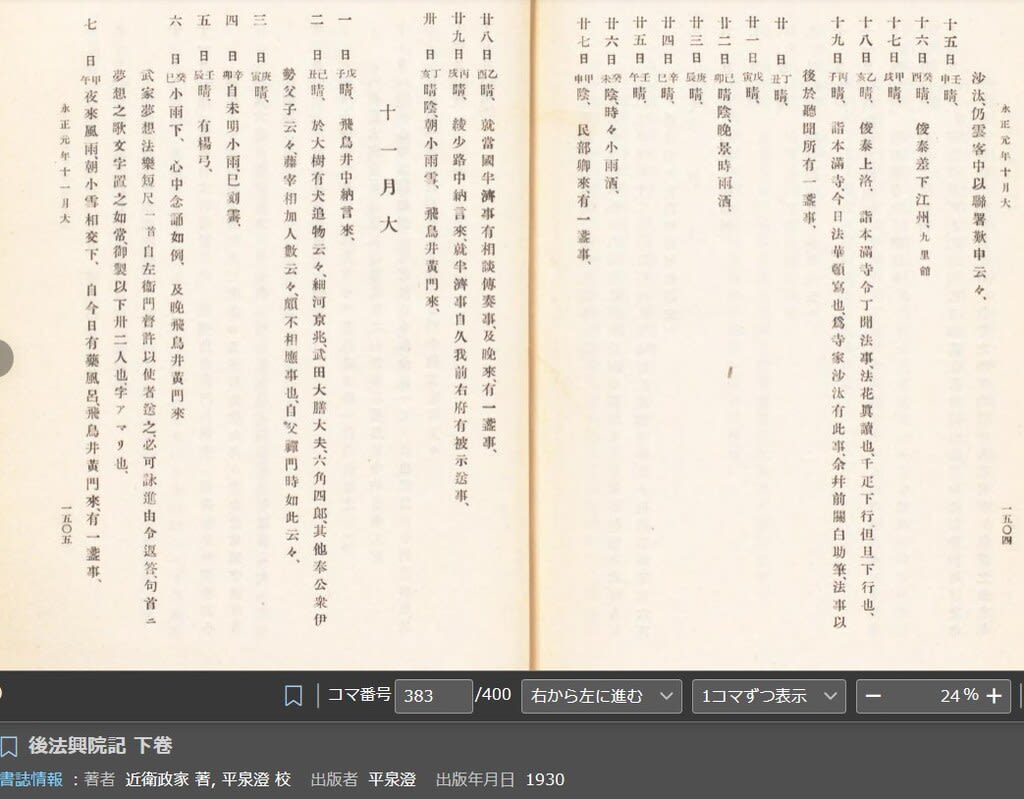 永正元年十月大
沙汰、仍雲客中以聯署歎申云々、
十五日壬申晴、
十六日癸酉晴、 俊泰差下江州、九里館
十七日甲戌晴、
十八日乙亥晴、 俊泰上洛、 詣本滿寺令丁聞法事、法花眞讀也、千疋下行、但且下行也、
十九日丙子晴、 詣本滿寺、今日法華頓寫也、爲寺家沙汰有此事、余幷前關白助筆、法事以
後於聽聞所有一盞事、
廿日丁丑晴、
廿一日戊寅晴、
廿二日己卯晴陰、晩景時雨洒、
廿三日庚辰晴、
廿四日辛巳晴、
廿五日壬午晴、
廿六日癸未晴、時々小雨洒、
廿七日甲申陰、 民部卿來有一盞事、
一五〇四
廿八日乙酉晴、 就當國半濟事有相談傳奏事、及晩來、有一盞事、
廿九日丙戌晴、 綾少路中納言來、就半濟事自久我前右府有被示送事、
卅日丁亥晴陰、朝小雨雪、 飛鳥井黃門來、
十一月大
一日戊子晴、 飛鳥井中納言來、
二日己丑晴、 於大樹有犬追物云々、細河京兆、武田大膳大夫、六角四郎、其他奉公衆伊
勢父子云々、藤宰相加人數云々、頗不相應事也、自父禪門時如此云々、
三日庚寅晴、
四日辛卯自未明小雨、巳刻霽、
五日壬辰晴、 有楊弓、
六日癸巳小雨下、 心中念誦如例、 及晩飛鳥井黃門來
武家夢想法樂短尺一首自左衞門督許以使者送之、必可詠進由令返答、句首ニ
夢想之歌文字置之如常、御製以下卅二人也、字アマリ也、
七日甲午夜來風雨、朝小雪相交下、 自今日有藥風呂、飛鳥井黃門來、有一盞事、
永正元年十一月大
一五〇五
コマ番号 383 /400 右から左に進む 1コマずつ表示 － 24 % ＋
後法興院記 下卷
書誌情報 : 著者 近衛政家 著, 平泉澄 校 出版者 平泉澄 出版年月日 1930